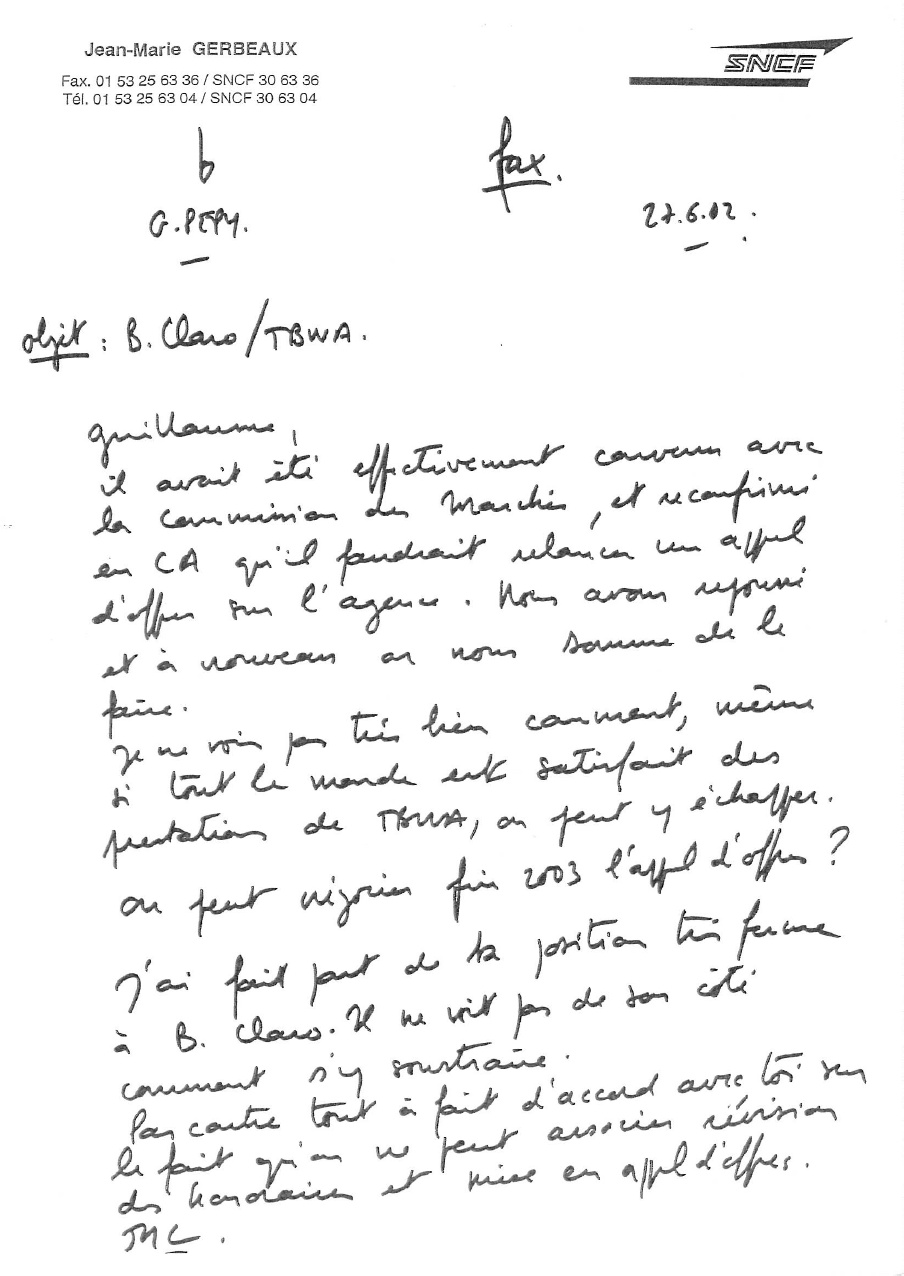 Jean-Marie GERBEAUX
SNCF
Fax. 01 53 25 63 36 / SNCF 30 63 36
Tél. 01 53 25 63 04 / SNCF 30 63 04
fax.
G. PEPY.
27.6.02.
objet : B. Claro / TBWA.
Guillaume,
il avait été effectivement convenu avec
la Commission des Marchés, et reconfirmé
en CA qu'il faudrait relancer un appel
d'offres sur l'agence. Nous avons repoussé
et à nouveau on nous somme de le
faire.
Je ne vois pas très bien comment, même
si tout le monde est satisfait des
prestations de TBWA, on peut y échapper.
On peut négocier fin 2003 l'appel d'offres ?
J'ai fait part de ta position très ferme
à B. Claro. Il ne voit pas de son côté
comment s'y soustraire.
Par contre tout à fait d'accord avec toi sur
le fait qu'on ne peut associer révision
des honoraires et mise en appel d'offres.